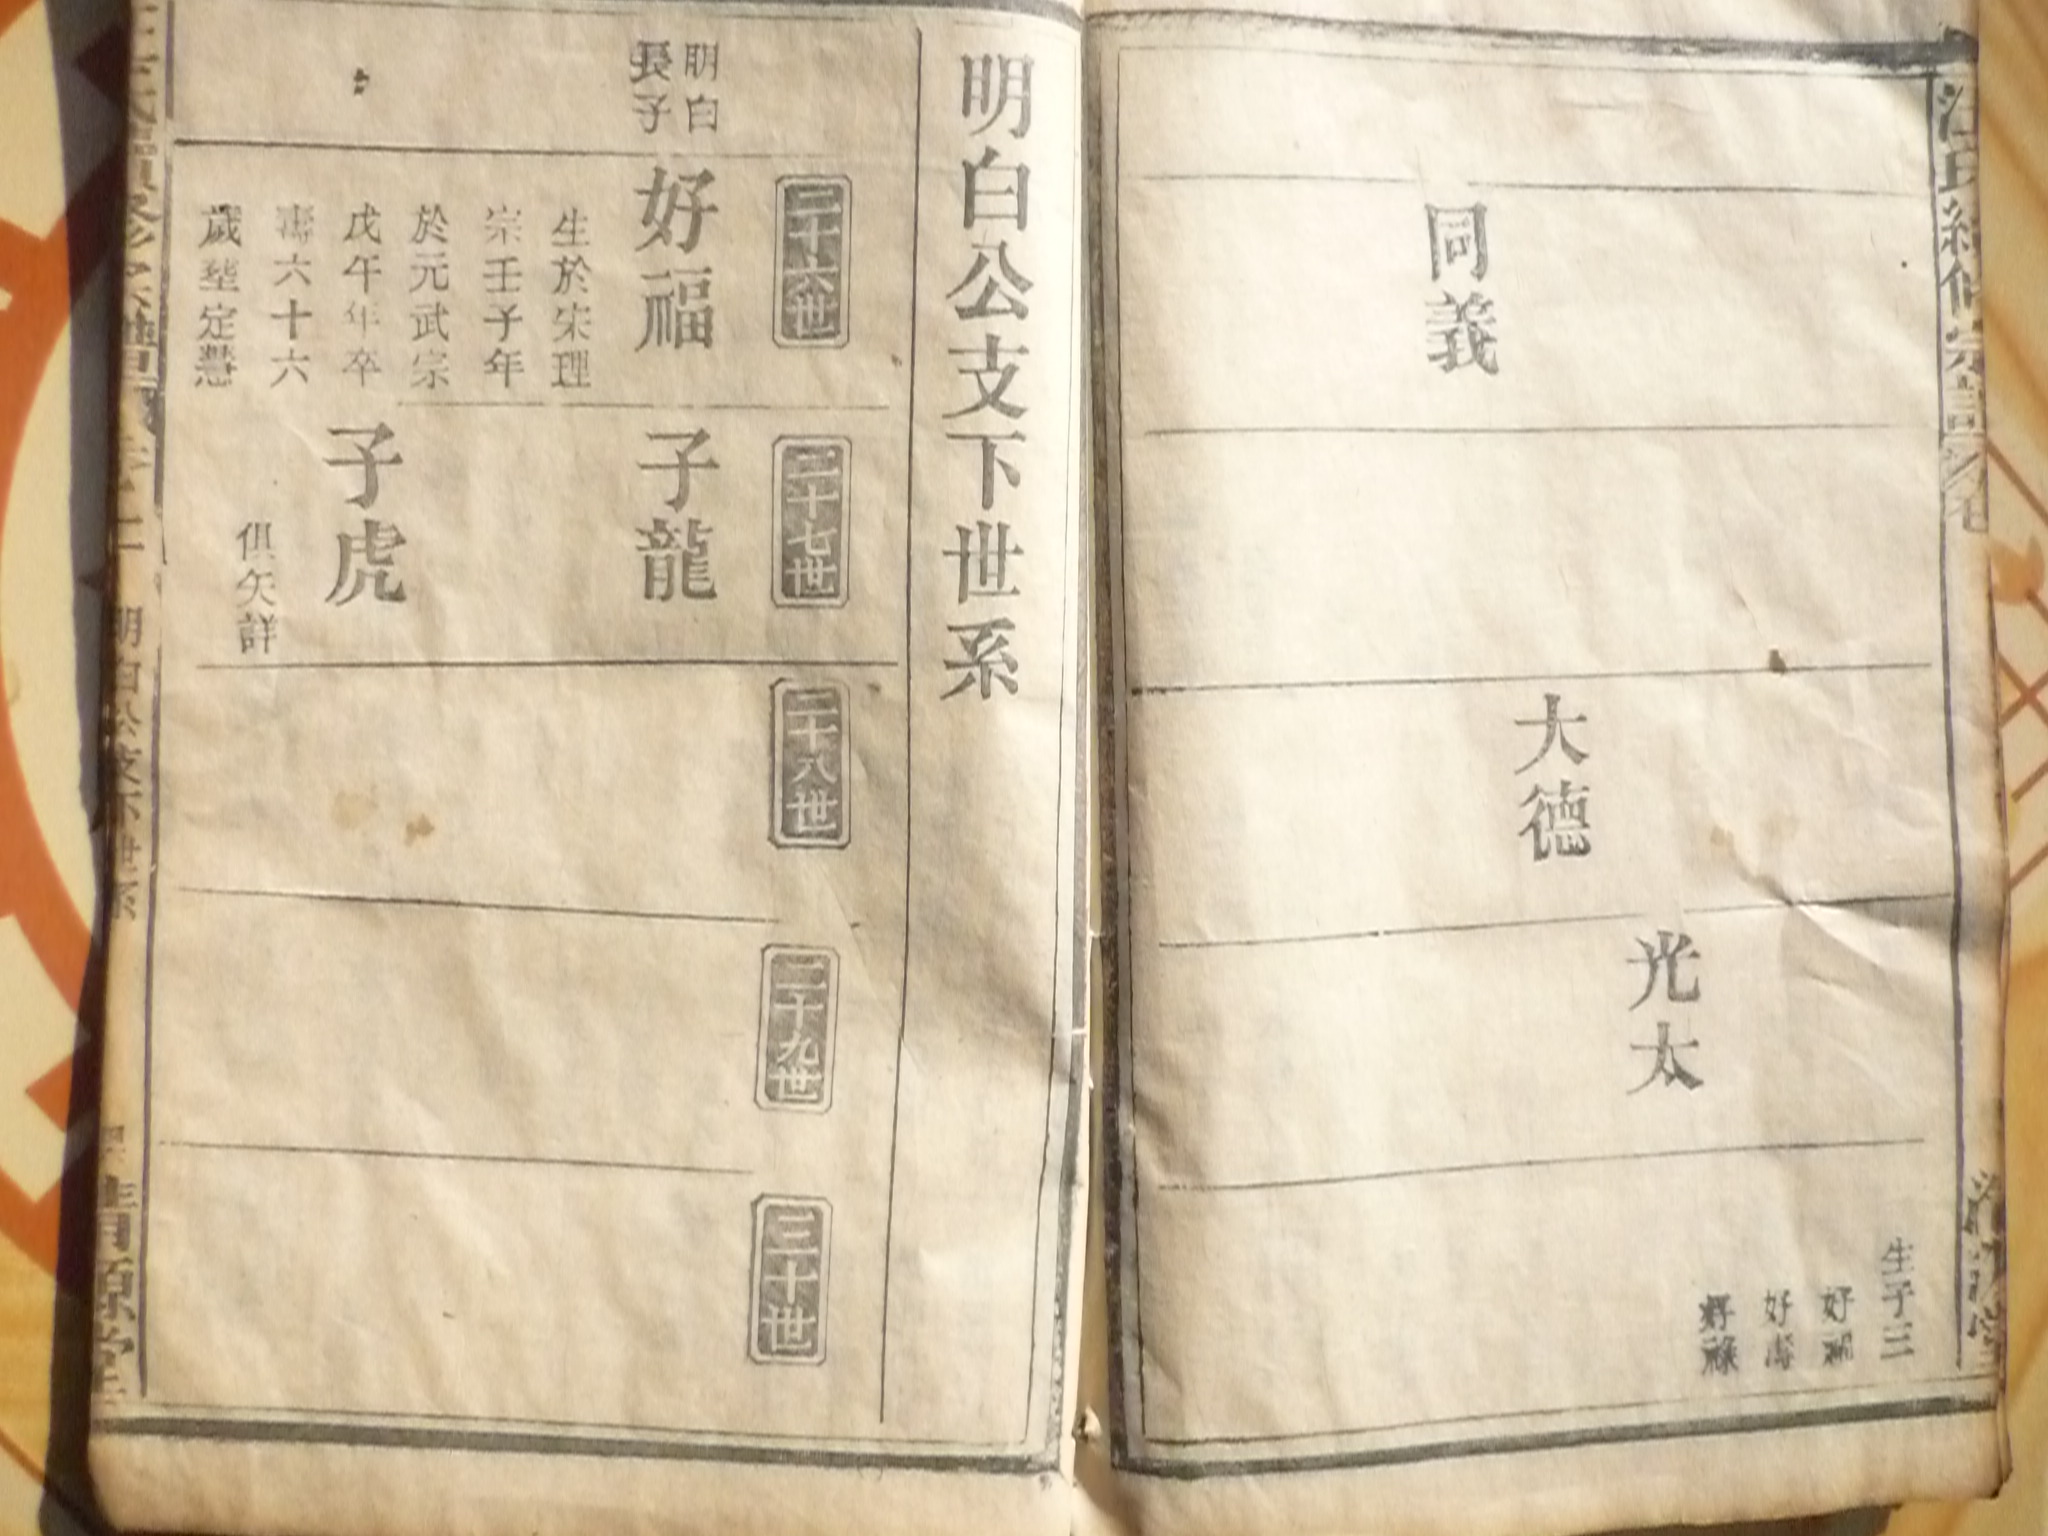 汪氏續修宗譜 卷
同義
大德
光太
生子三
好福
好壽
好祿
明白公支下世系
二十六世
二十七世
二十八世
二十九世
三十世
明白
長子
好福
生於宋理
宗壬子年
於元武宗
戊午年卒
壽六十六
歲塟定慧
子龍
子虎
俱失詳
明白公支下世系
清源堂